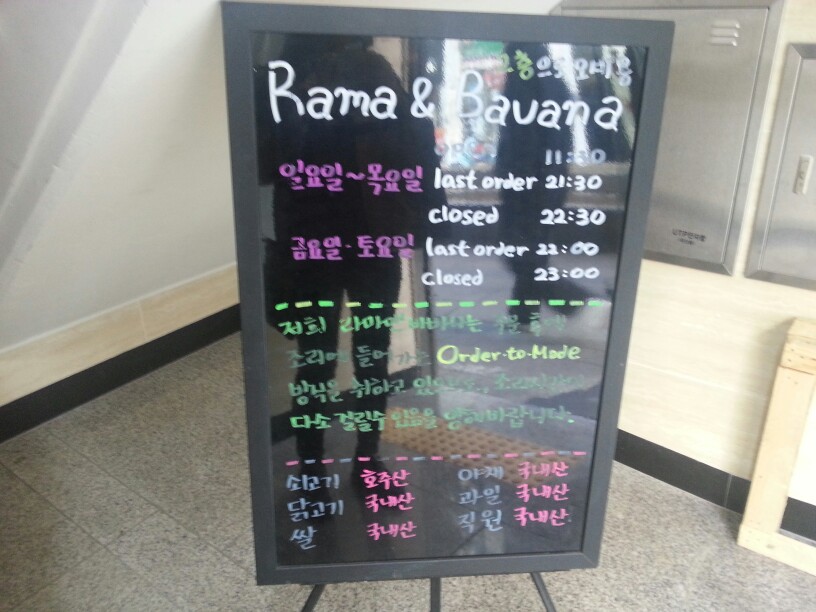 2층으로 오세용
Rama & Bavana
open 11:30
일요일~목요일 last order 21:30
closed 22:30
금요일·토요일 last order 22:00
closed 23:00
저희 라마앤바바나는 주문 후에
조리에 들어가는 Order-to-Made
방식을 취하고 있으므로, 조리시간이
다소 걸릴수 있음을 양해바랍니다.
쇠고기 호주산 야채 국내산
닭고기 국내산 과일 국내산
쌀 국내산 직원 국내산